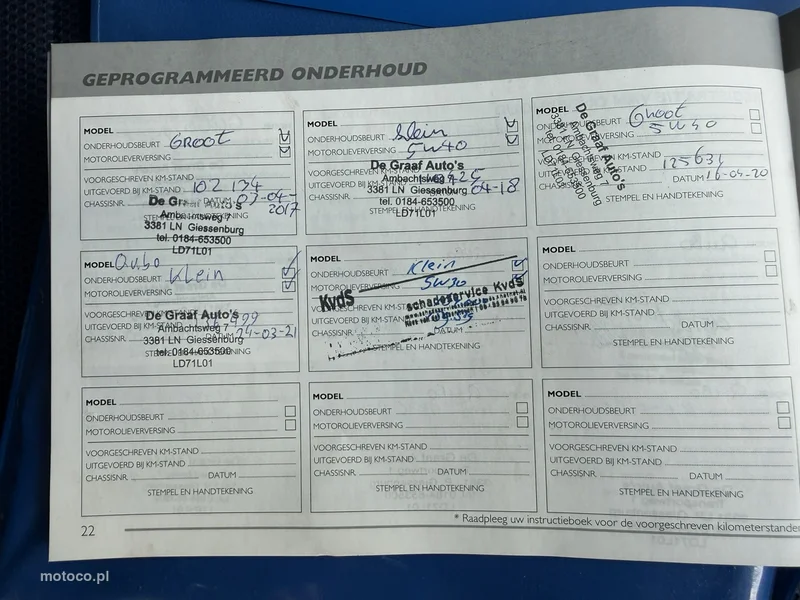 GEPROGRAMMEERD ONDERHOUD
MODEL
ONDERHOUDSBEURT GROOT
MOTOROLIEVERVERSING
VOORGESCHREVEN KM-STAND
UITGEVOERD BIJ KM-STAND 102 134
CHASSISNR. DATUM 03-04-2017
De Graaf Auto's
STEMPEL EN HANDTEKENING
Ambachtsweg 7
3381 LN Giessenburg
tel. 0184-653500
LD71L01
MODEL
ONDERHOUDSBEURT klein
MOTOROLIEVERVERSING 5W40
VOORGESCHREVEN KM-STAND
De Graaf Auto's
UITGEVOERD BIJ KM-STAND
Ambachtsweg 7
CHASSISNR. 04-18
3381 LN Giessenburg
tel. 0184-653500
STEMPEL EN HANDTEKENING
LD71L01
MODEL
ONDERHOUDSBEURT Groot
MOTOROLIEVERVERSING 5W40
VOORGESCHREVEN KM-STAND
UITGEVOERD BIJ KM-STAND 125631
CHASSISNR. DATUM 16-04-20
STEMPEL EN HANDTEKENING
De Graaf Auto's
Ambachtsweg 7
3381 LN Giessenburg
tel. 0184-653500
LD71L01
MODEL
ONDERHOUDSBEURT Klein
MOTOROLIEVERVERSING
VOORGESCHREVEN KM-STAND
De Graaf Auto's
UITGEVOERD BIJ KM-STAND
Ambachtsweg 7
CHASSISNR. DATUM 24-03-21
3381 LN Giessenburg
STEMPEL EN HANDTEKENING
tel. 0184-653500
LD71L01
MODEL
ONDERHOUDSBEURT Klein
MOTOROLIEVERVERSING 5W30
KvdS schadeservice KvdS
VOORGESCHREVEN KM-STAND
UITGEVOERD BIJ KM-STAND
CHASSISNR. DATUM
STEMPEL EN HANDTEKENING
MODEL
ONDERHOUDSBEURT
MOTOROLIEVERVERSING
VOORGESCHREVEN KM-STAND
UITGEVOERD BIJ KM-STAND
CHASSISNR. DATUM
STEMPEL EN HANDTEKENING
MODEL
ONDERHOUDSBEURT
MOTOROLIEVERVERSING
VOORGESCHREVEN KM-STAND
UITGEVOERD BIJ KM-STAND
CHASSISNR. DATUM
STEMPEL EN HANDTEKENING
MODEL
ONDERHOUDSBEURT
MOTOROLIEVERVERSING
VOORGESCHREVEN KM-STAND
UITGEVOERD BIJ KM-STAND
CHASSISNR. DATUM
STEMPEL EN HANDTEKENING
MODEL
ONDERHOUDSBEURT
MOTOROLIEVERVERSING
VOORGESCHREVEN KM-STAND
UITGEVOERD BIJ KM-STAND
CHASSISNR. DATUM
STEMPEL EN HANDTEKENING
22
* Raadpleeg uw instructieboek voor de voorgeschreven kilometerstanden
motoco.pl